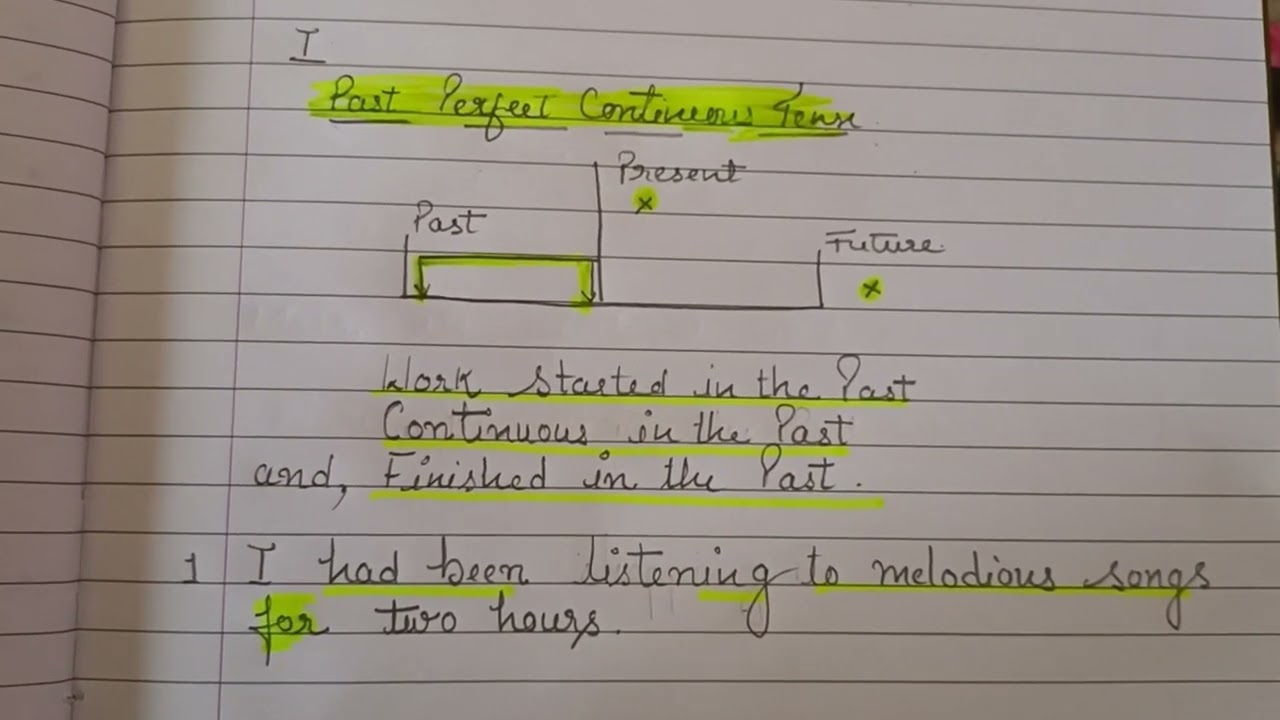 I
Past Perfect Continuous Tense
Present
x
Past
Future
x
Work started in the Past
Continuous in the Past
and, Finished in the Past.
1 I had been listening to melodious songs
for two hours.